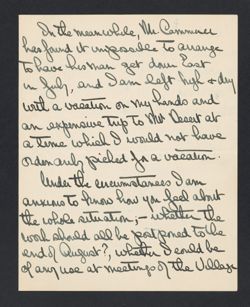 In the meanwhile, Mr Cammerer
has found it impossible to arrange
to have his man get down East
in July, and I am left high & dry
with a vacation on my hands and
an expensive trip to Mt Desert at
a time which I would not have
ordinarily picked for a vacation.
Under the circumstances I am
anxious to know how you feel about
the whole situation; – whether the
work should all be postponed to the
end of August?, whether I could be
of any use at meetings of the Village